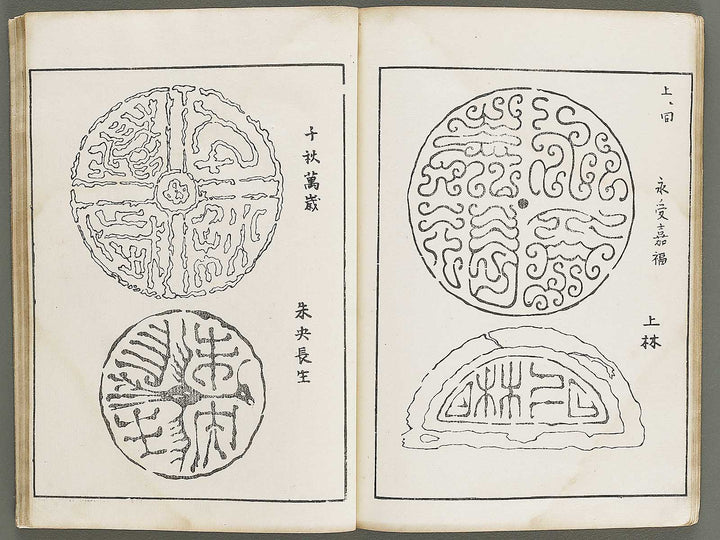 上、同
永受嘉福
上林
千秋萬歲
朱央長生